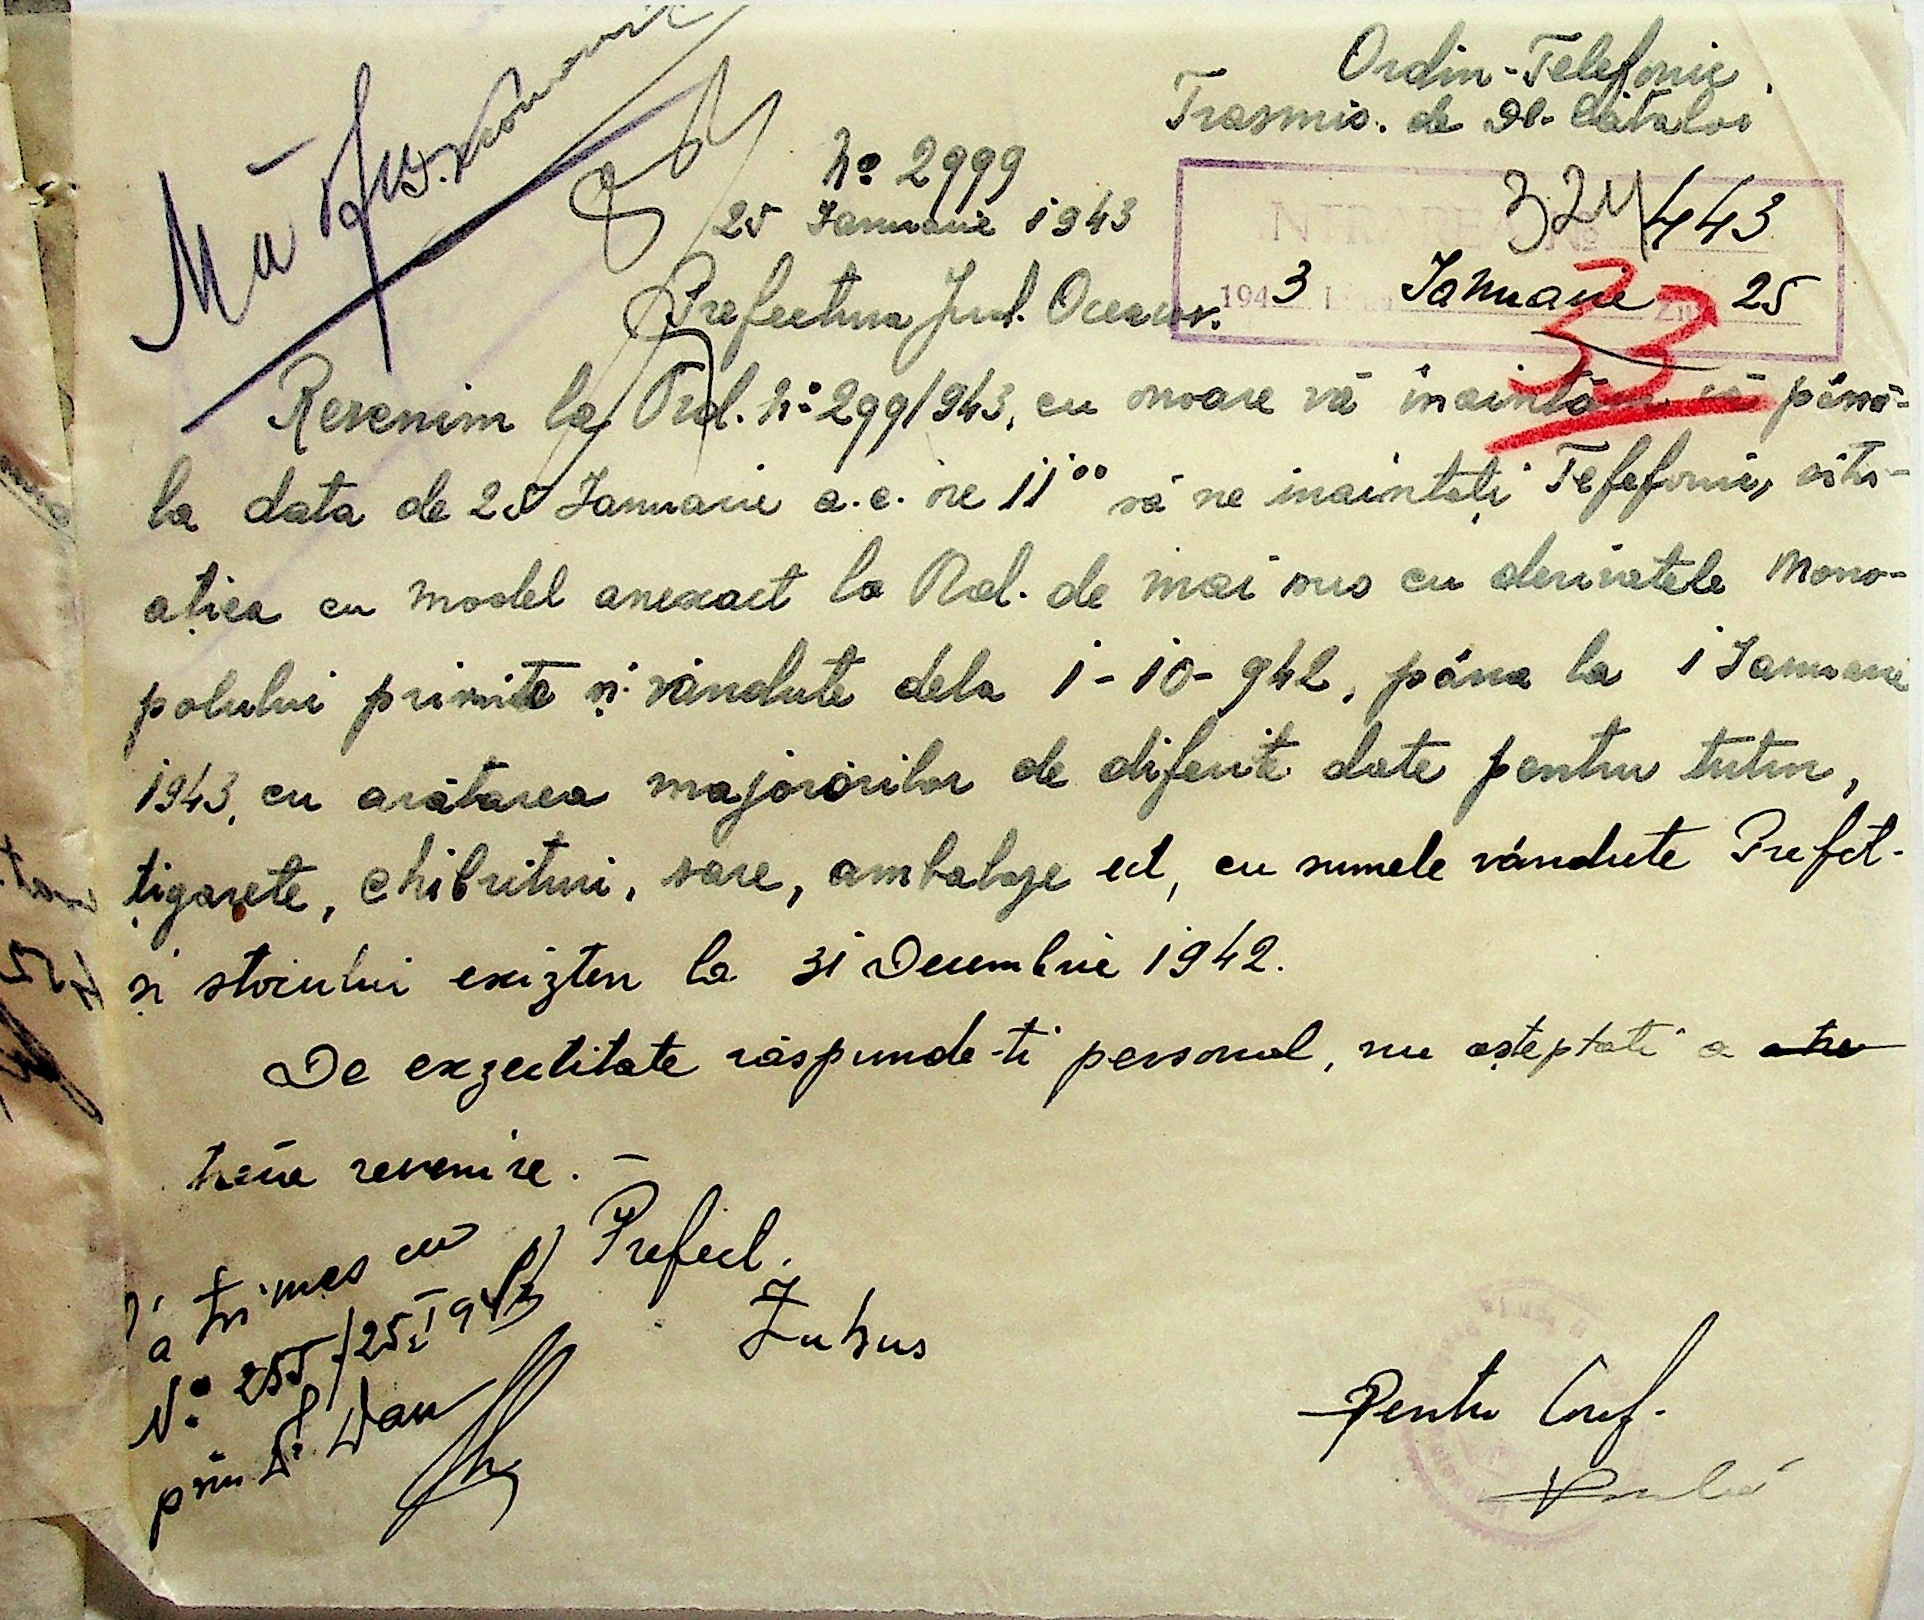 Ordin-Telefonic
Trasmis. de Dl. Cătaloi
No 2999
25 Ianuarie 1943
324/443
INTRARE No
1943 Ianuarie 25
33
Prefectura Jud. Oceacov.
Revenim la Ord. No 299/943, cu onoare vă înaintăm să până-
la data de 25 Ianuarie a.c. ore 11⁰⁰ să ne inaintați Tefefonic, situ-
ația cu model anexact la Ord. de mai sus cu derivatele Mono-
polului primite și vândute dela 1-10-942, până la 1 Ianuarie
1943, cu arătarea majorărilor de diferite date pentru tutun,
țigarete, chibrituri, sare, ambalaje ect, cu sumele vândute Prefct.
și stocului exizten la 31 Decembrie 1942.
De exzectitate răspunde-ti personal, nu așteptati a
treia revenire. –
Prefect.
a trimes cu
No 255/25 I 1943
prin Dl. Dan
Pentru Conf.